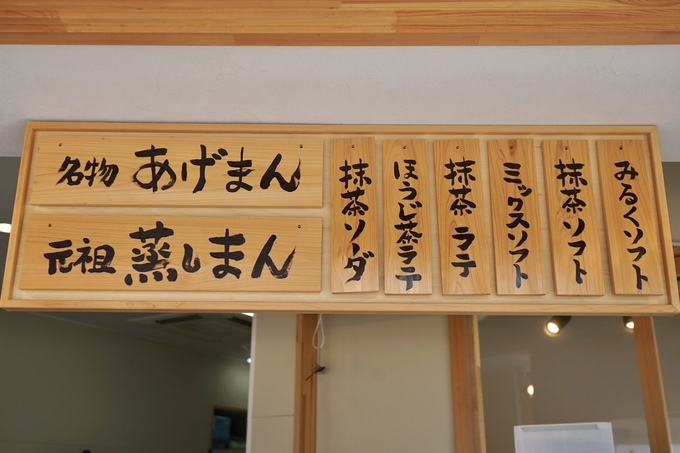 名物 あげまん
元祖 蒸しまん
みるくソフト
抹茶ソフト
ミックスソフト
抹茶ラテ
ほうじ茶ラテ
抹茶ソーダ